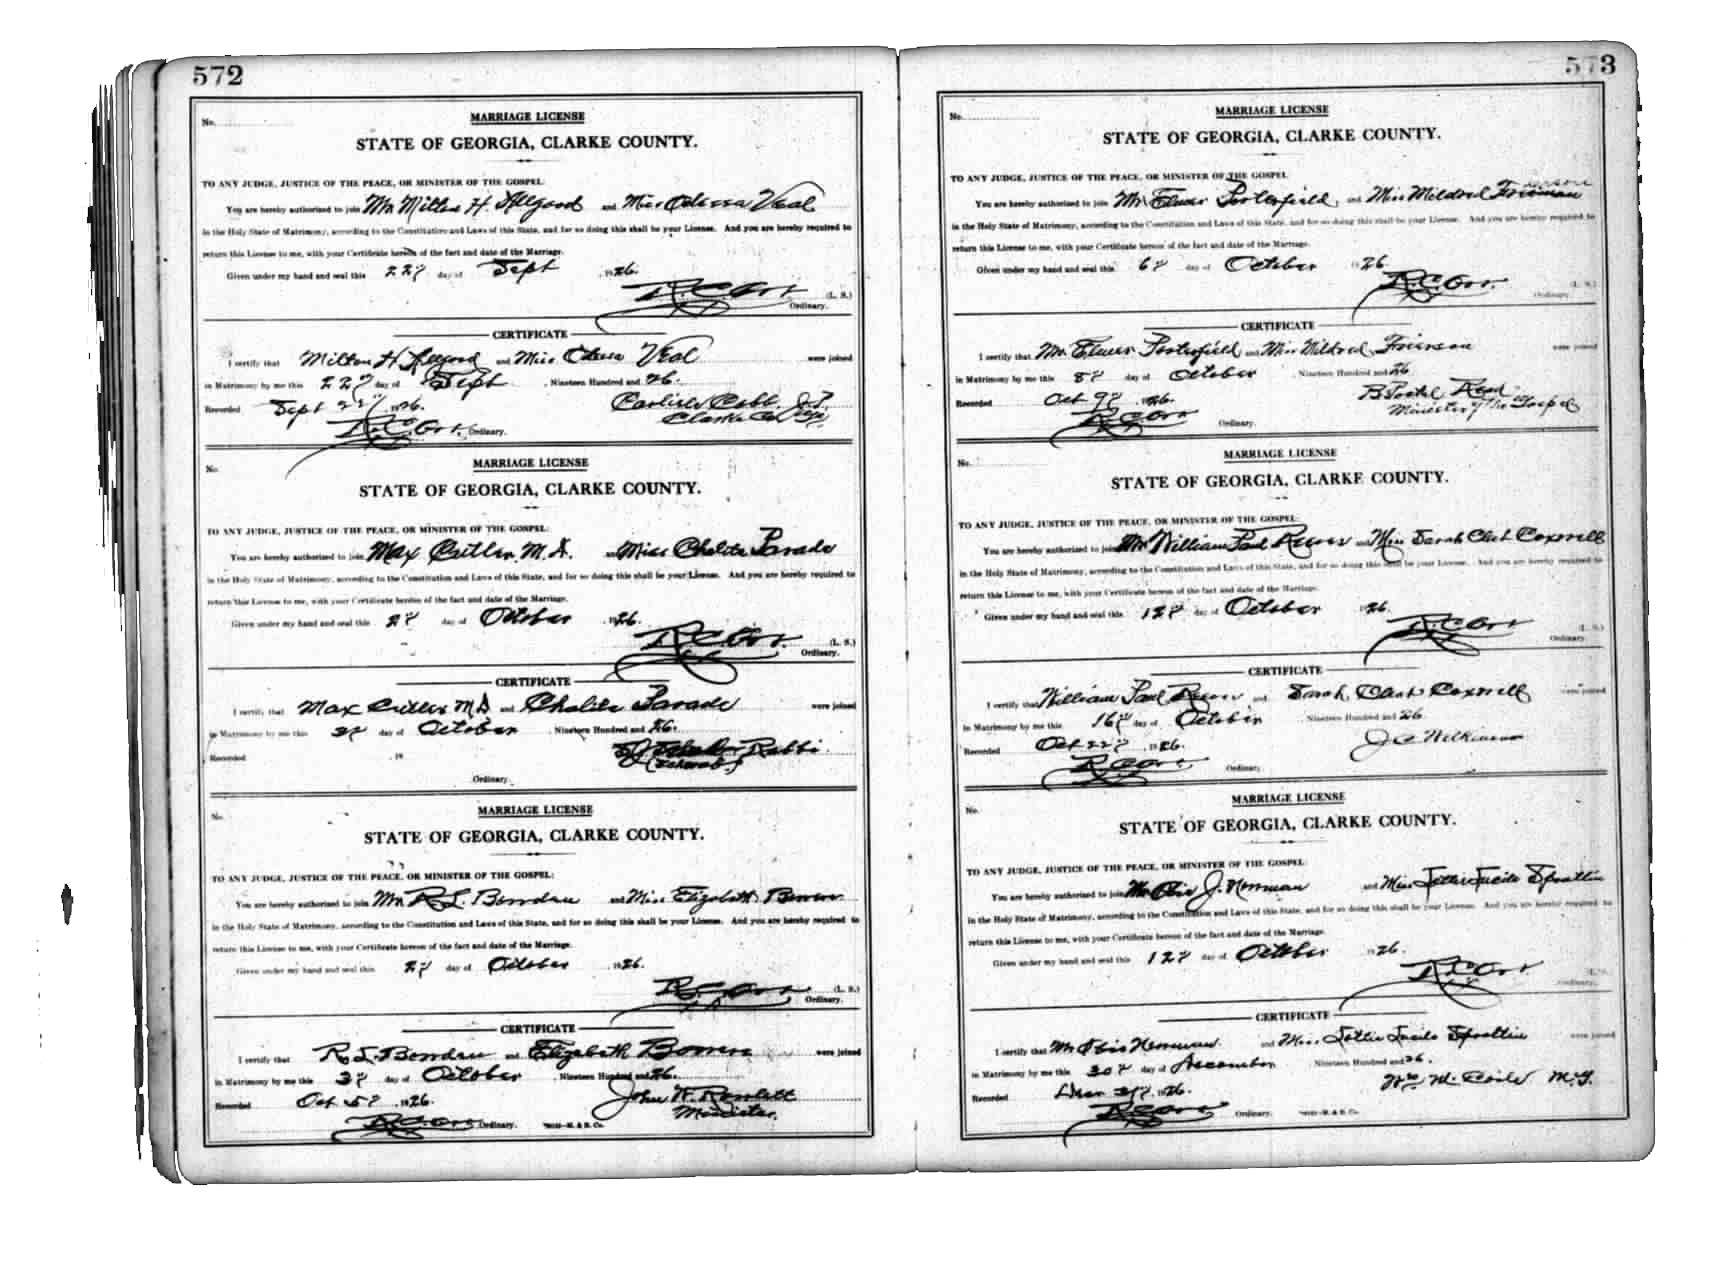 572
No.
MARRIAGE LICENSE
STATE OF GEORGIA, CLARKE COUNTY.
TO ANY JUDGE, JUSTICE OF THE PEACE, OR MINISTER OF THE GOSPEL:
You are hereby authorized to join Mr Milton H. Allgood and Miss Odessa Veal
in the Holy State of Matrimony, according to the Constitution and Laws of this State, and for so doing this shall be your License. And you are hereby required to
return this License to me, with your Certificate hereon of the fact and date of the Marriage.
Given under my hand and seal this 22nd day of Sept 1926.
R.C. Orr (L. S.)
Ordinary.
CERTIFICATE
I certify that Milton H Allgood and Miss Odessa Veal were joined
in Matrimony by me this 22nd day of Sept, Nineteen Hundred and 26.
Recorded Sept 22 1926. Carlisle Cobb J.P.
R.C. Orr, Ordinary. Clarke Co
No.
MARRIAGE LICENSE
STATE OF GEORGIA, CLARKE COUNTY.
TO ANY JUDGE, JUSTICE OF THE PEACE, OR MINISTER OF THE GOSPEL:
You are hereby authorized to join Max Cutler M.D. and Miss Chalita
in the Holy State of Matrimony, according to the Constitution and Laws of this State, and for so doing this shall be your License. And you are hereby required to
return this License to me, with your Certificate hereon of the fact and date of the Marriage.
Given under my hand and seal this 2 day of October 1926.
R.C. Orr. (L. S.)
Ordinary.
CERTIFICATE
I certify that Max Cutler M D and Chalita were joined
in Matrimony by me this day of October, Nineteen Hundred and 26.
Recorded 19 Rabbi
Ordinary.
No.
MARRIAGE LICENSE
STATE OF GEORGIA, CLARKE COUNTY.
TO ANY JUDGE, JUSTICE OF THE PEACE, OR MINISTER OF THE GOSPEL:
You are hereby authorized to join Mr R L. and Miss Elizabeth Bowen
in the Holy State of Matrimony, according to the Constitution and Laws of this State, and for so doing this shall be your License. And you are hereby required to
return this License to me, with your Certificate hereon of the fact and date of the Marriage.
Given under my hand and seal this 2 day of October 1926.
R.C. Orr (L. S.)
Ordinary.
CERTIFICATE
I certify that R. L. and Elizabeth Bowen were joined
in Matrimony by me this 3 day of October, Nineteen Hundred and 26.
Recorded Oct 5 1926. John W.
R.C. Orr Ordinary. Minister.
573
No.
MARRIAGE LICENSE
STATE OF GEORGIA, CLARKE COUNTY.
TO ANY JUDGE, JUSTICE OF THE PEACE, OR MINISTER OF THE GOSPEL:
You are hereby authorized to join Mr Elmer Porterfield, and Miss Mildred
in the Holy State of Matrimony, according to the Constitution and Laws of this State, and for so doing this shall be your License. And you are hereby required to
return this License to me, with your Certificate hereon of the fact and date of the Marriage.
Given under my hand and seal this 6 day of October 1926.
R.C. Orr. (L. S.)
Ordinary.
CERTIFICATE
I certify that Mr Elmer Porterfield and Miss Mildred Frierson were joined
in Matrimony by me this 8 day of October, Nineteen Hundred and 26
Recorded Oct 9 1926. Minister of the Gospel
R.C. Orr Ordinary.
No.
MARRIAGE LICENSE
STATE OF GEORGIA, CLARKE COUNTY.
TO ANY JUDGE, JUSTICE OF THE PEACE, OR MINISTER OF THE GOSPEL:
You are hereby authorized to join Mr William Paul and Miss Sarah Coxwell
in the Holy State of Matrimony, according to the Constitution and Laws of this State, and for so doing this shall be your License. And you are hereby required to
return this License to me, with your Certificate hereon of the fact and date of the Marriage.
Given under my hand and seal this 12 day of October 1926.
R.C. Orr (L. S.)
Ordinary.
CERTIFICATE
I certify that William Paul and Sarah Coxwell were joined
in Matrimony by me this 16 day of October, Nineteen Hundred and 26.
Recorded Oct 22 1926. Wilkinson
R.C. Orr Ordinary.
No.
MARRIAGE LICENSE
STATE OF GEORGIA, CLARKE COUNTY.
TO ANY JUDGE, JUSTICE OF THE PEACE, OR MINISTER OF THE GOSPEL:
You are hereby authorized to join Mr J. Norman and Miss Lucile
in the Holy State of Matrimony, according to the Constitution and Laws of this State, and for so doing this shall be your License. And you are hereby required to
return this License to me, with your Certificate hereon of the fact and date of the Marriage.
Given under my hand and seal this 12 day of October 1926.
R.C. Orr (L.S.
Ordinary.
CERTIFICATE
I certify that Mr Norman and Miss Lucile were joined
in Matrimony by me this 30 day of December Nineteen Hundred and 26.
Recorded 1926. Wm M. Coile M.G.
R.C. Orr Ordinary.